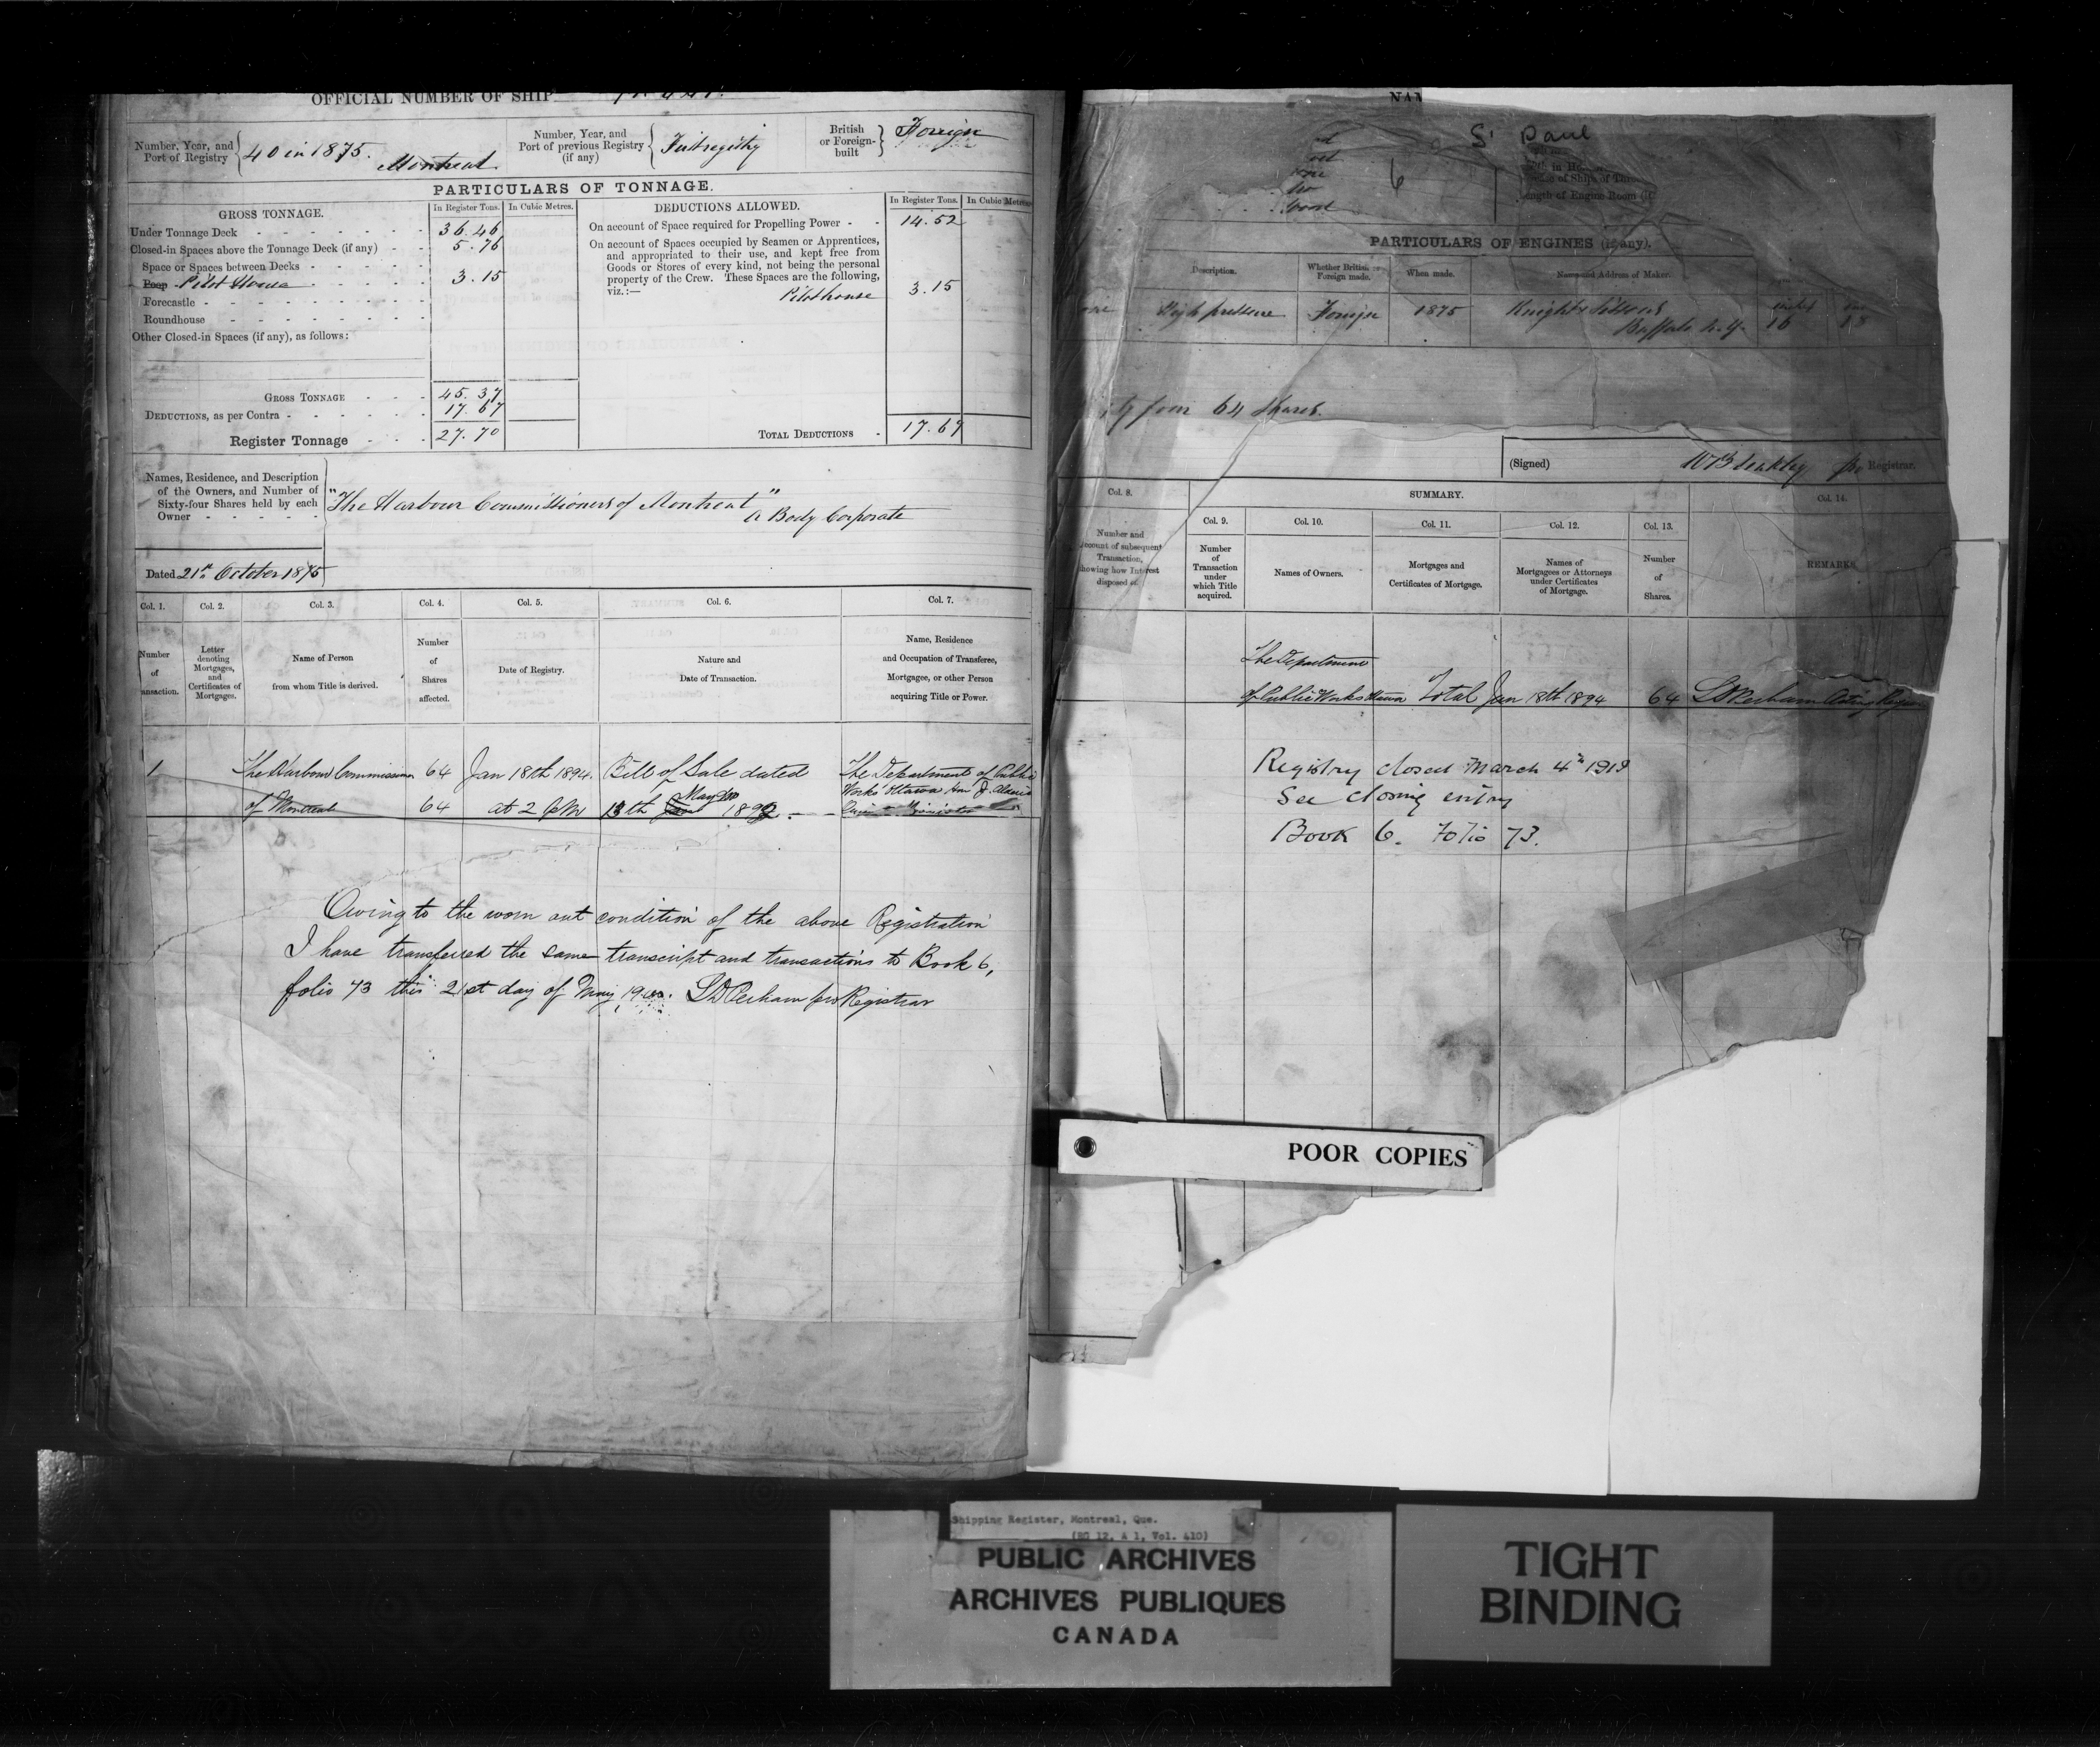 OFFICIAL NUMBER OF SHIP
Number, Year, and
Port of Registry
40 in 1875.
Montreal
Number, Year, and
Port of previous Registry
(if any)
First registry
British
or Foreign-
built
Foreign
PARTICULARS OF TONNAGE.
GROSS TONNAGE.
In Register Tons.
In Cubic Metres.
DEDUCTIONS ALLOWED.
In Register Tons.
In Cubic Metres.
Under Tonnage Deck - - - - - - - 36.46
Closed-in Spaces above the Tonnage Deck (if any) - - 5.76
Space or Spaces between Decks - - - - -
Poop Pilot House - - - - - 3.15
Forecastle - - - - - - - - -
Roundhouse - - - - - - - -
Other Closed-in Spaces (if any), as follows:
GROSS TONNAGE - - - 45.37
DEDUCTIONS, as per Contra - - - - - - 17.67
Register Tonnage - - - 27.70
On account of Space required for Propelling Power - - 14.52
On account of Spaces occupied by Seamen or Apprentices,
and appropriated to their use, and kept free from
Goods or Stores of every kind, not being the personal
property of the Crew. These Spaces are the following,
viz.:—
Pilot house 3.15
TOTAL DEDUCTIONS - 17.67
Names, Residence, and Description
of the Owners, and Number of
Sixty-four Shares held by each
Owner - - - - -
"The Harbour Commissioners of Montreal"
A Body Corporate
Dated 21st October 1875
Col. 1.
Col. 2.
Col. 3.
Col. 4.
Col. 5.
Col. 6.
Col. 7.
Number
of
ansaction.
Letter
denoting
Mortgages,
and
Certificates of
Mortgages.
Name of Person
from whom Title is derived.
Number
of
Shares
affected.
Date of Registry.
Nature and
Date of Transaction.
Name, Residence
and Occupation of Transferee,
Mortgagee, or other Person
acquiring Title or Power.
1 The Harbour Commissioners 64 Jan 18th 1894. Bill of Sale dated The Department of Public
of Montreal 64 at 2 PM 13th May 1892. Works Ottawa
Owing to the worn out condition of the above Registration
I have transferred the same transcript and transactions to Book 6,
folio 73 this 21st day of May LD Perham pro Registrar
NAM
St Paul
6
Length of Engine Room (if
PARTICULARS OF ENGINES (if any).
Description.
Whether British or
Foreign made.
When made.
Name and Address of Maker.
High pressure Foreign 1875 Knight & Sissons
Buffalo N.Y. 16 18
four 64 Shares.
(Signed)
pro Registrar.
Col. 8.
SUMMARY.
Col. 14.
Col. 9.
Col. 10.
Col. 11.
Col. 12.
Col. 13.
Number and
account of subsequent
Transaction,
showing how Interest
disposed of.
Number
of
Transaction
under
which Title
acquired.
Names of Owners.
Mortgages and
Certificates of Mortgage.
Names of
Mortgagees or Attorneys
under Certificates
of Mortgage.
Number
of
Shares.
REMARKS.
The Department
of Public Works Ottawa Total Jan 18th 1894 64 LD Perham Acting Registrar
Registry closed March 4th 1919
See closing entry
Book 6. Folio 73.
POOR COPIES
Shipping Register, Montreal, Que.
(RG 12, A 1, Vol. 410)
PUBLIC ARCHIVES
ARCHIVES PUBLIQUES
CANADA
TIGHT
BINDING